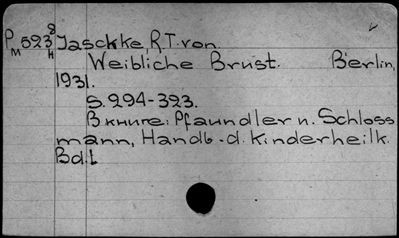 P 523 8 Jaschke, R.T. von.
M H Weibliche Brust. Berlin,
1931.
S. 294-323.
В книге: Pfaundler u. Schloss
mann, Handb. d. Kinderheilk.
Bd. I